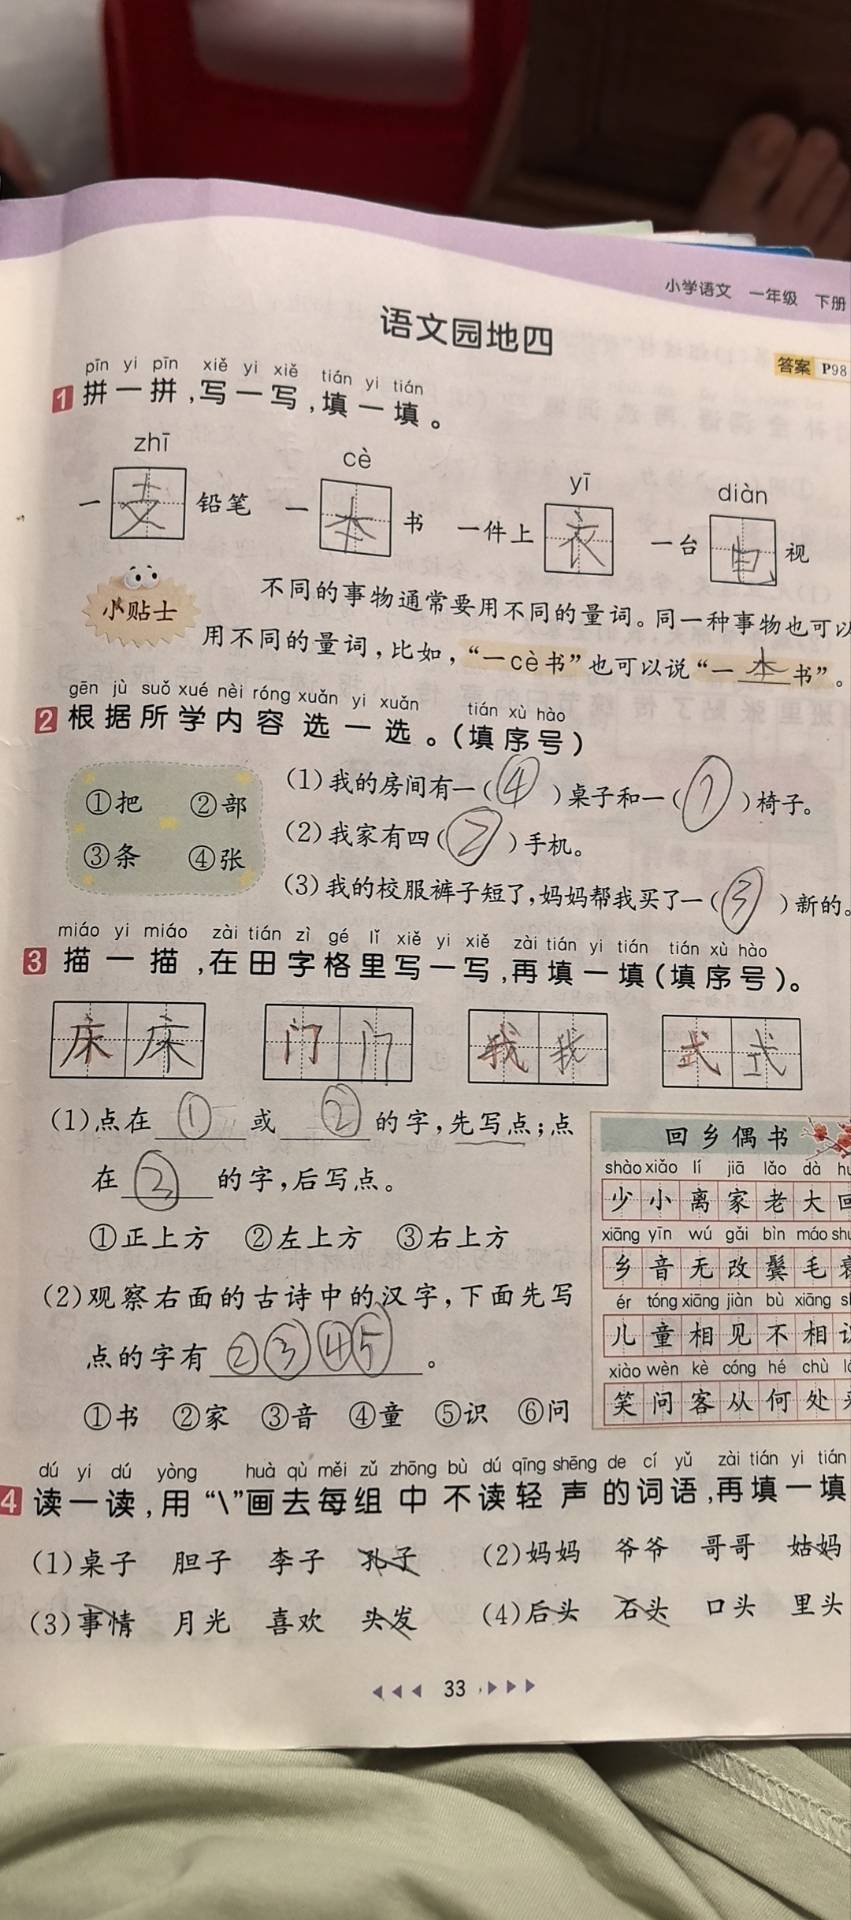 小学语文 一年级 下册
语文园地四
答案 P98
pīn yi pīn xiě yi xiě tián yi tián
1 拼一拼,写一写,填一填。
zhī cè yī diàn
一支铅笔 一本书 一件上衣 一台电视
小贴士
不同的事物通常要用不同的量词。同一种事物也可以
用不同的量词,比如,“一cè书”也可以说“一本书”。
gēn jù suǒ xué nèi róng xuǎn yi xuǎn tián xù hào
2 根据所学内容选一选。(填序号)
①把 ②部
③条 ④张
(1)我的房间有一(④)桌子和一(①)椅子。
(2)我家有四(②)手机。
(3)我的校服裤子短了,妈妈帮我买了一(③)新的。
miáo yi miáo zài tián zì gé lǐ xiě yi xiě zài tián yi tián tián xù hào
3 描一描,在田字格里写一写,再填一填(填序号)。
床 床 门 门 我 我 式 式
(1)点在①或②的字,先写点;点
在②的字,后写点。
①正上方 ②左上方 ③右上方
(2)观察右面的古诗中的汉字,下面先写
点的字有②③④⑤。
①书 ②家 ③音 ④童 ⑤识 ⑥问
回乡偶书
shào xiǎo lí jiā lǎo dà
少小离家老大
xiāng yīn wú gǎi bìn máo
乡音无改鬓毛
ér tóng xiāng jiàn bù xiāng
儿童相见不相
xiào wèn kè cóng hé chù
笑问客从何处
dú yi dú yòng huà qù měi zǔ zhōng bù dú qīng shēng de cí yǔ zài tián yi tián
4 读一读,用“\”画去每组中不读轻声的词语,再填一填
(1)桌子 胆子 李子 孔子 (2)妈妈 爷爷 哥哥 姑妈
(3)事情 月光 喜欢 头发 (4)后头 石头 口头 里头
33